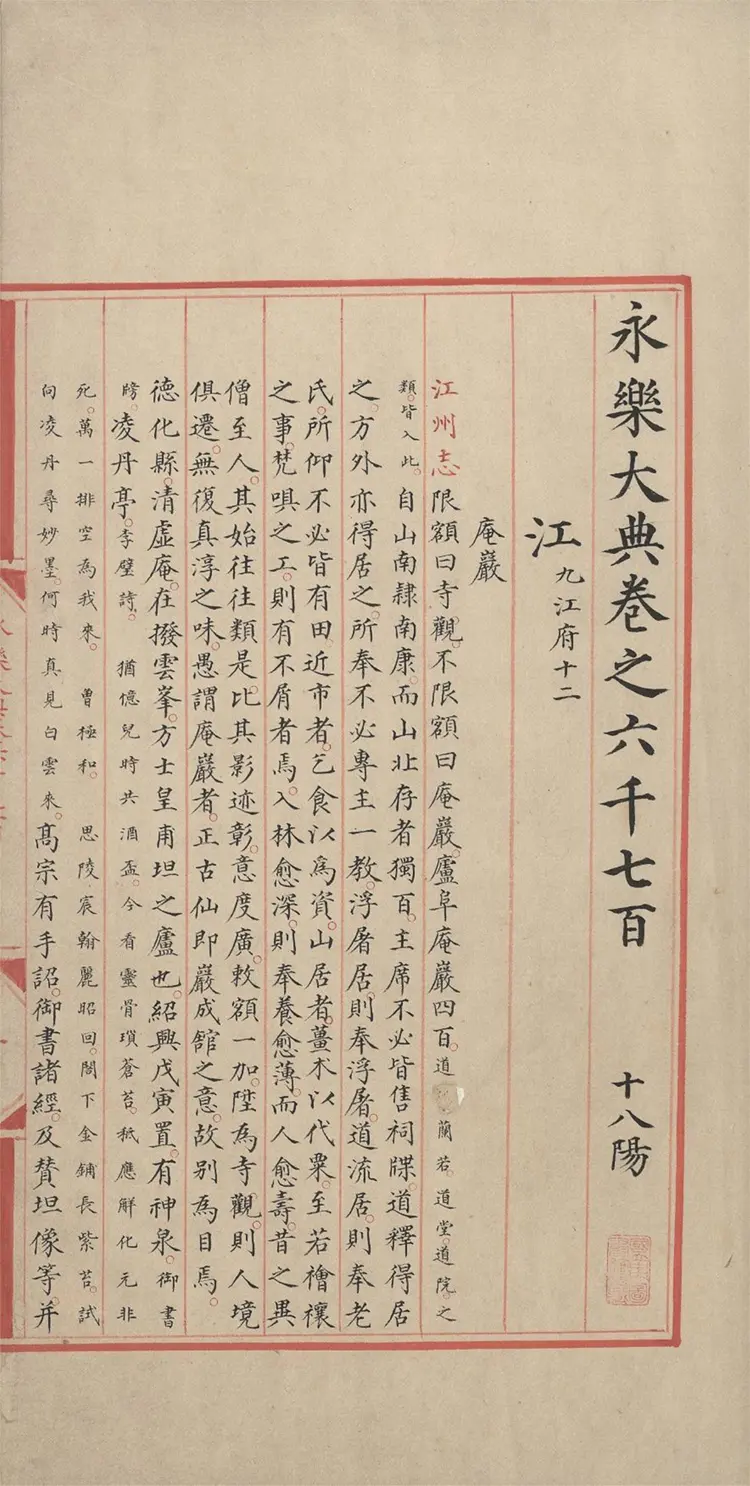 永樂大典卷之六千七百 十八陽
江 九江府十二
庵巖
江州志限額曰寺觀。不限額曰庵巖。廬阜庵巖四百。道 蘭若。道堂。道院。之
類。皆入此。自山南隸南康。而山北存者獨百。主席不必皆售祠牒。道釋得居
之。方外亦得居之。所奉不必專主一教。浮屠居。則奉浮屠。道流居。則奉老
氏。所仰不必皆有田。近市者。乞食以為資。山居者。薑朮以代粟。至若禬禳
之事。梵唄之工。則有不屑者焉。入林愈深。則奉養愈薄。而人愈壽。昔之異
僧至人。其始往往類是。比其影迹彰。意度廣。敕額一加。陞為寺觀。則人境
俱遷。無復真淳之味。愚謂庵巖者。正古仙即巖成館之意。故別為目焉。
德化縣。清虛庵。在撥雲峯。方士皇甫坦之廬也。紹興戊寅置。有神泉。御書
牓。凌丹亭。李壁詩。猶億兒時共酒盃。今看靈骨瑣蒼苔。秖應解化元非
死。萬一排空為我來。曾極和。思陵宸翰麗昭回。閤下金鋪長紫苔。試
向凌丹尋妙墨。何時真見白雲來。髙宗有手詔。御書諸經。及賛坦像等。并